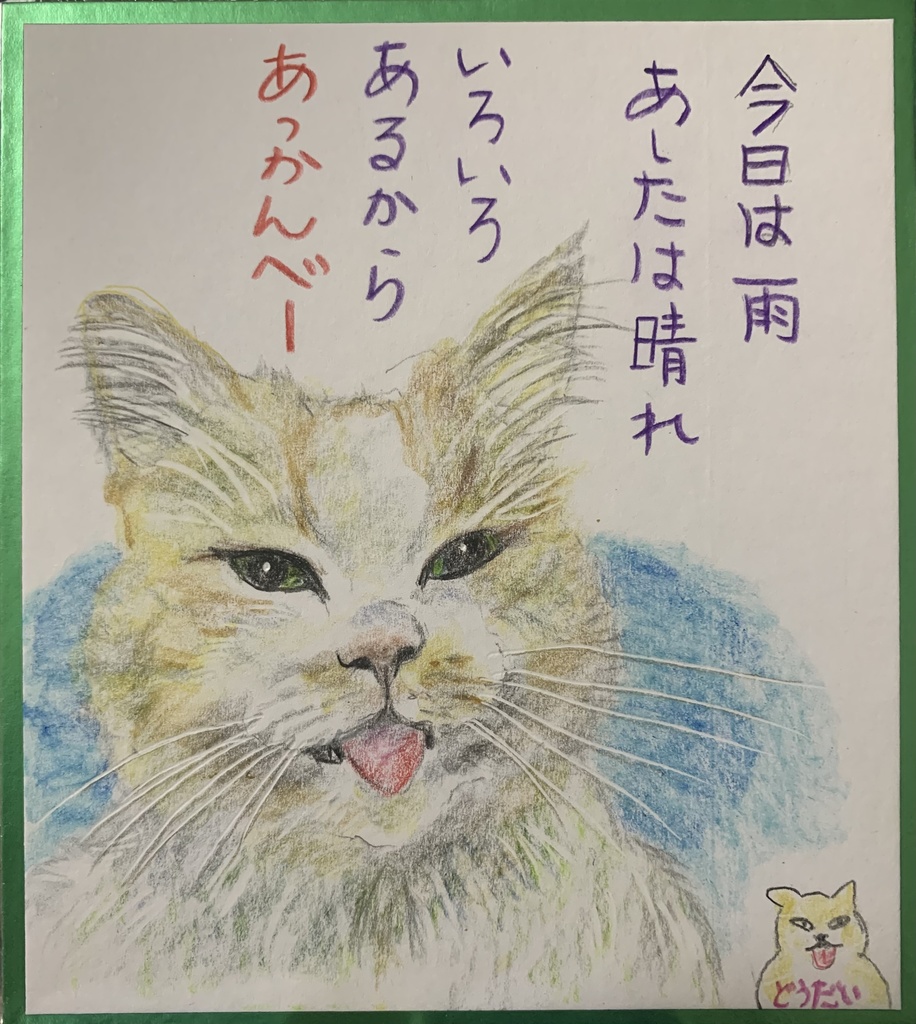 今日は雨
あしたは晴れ
いろいろ
あるから
あっかんべー
どうだい